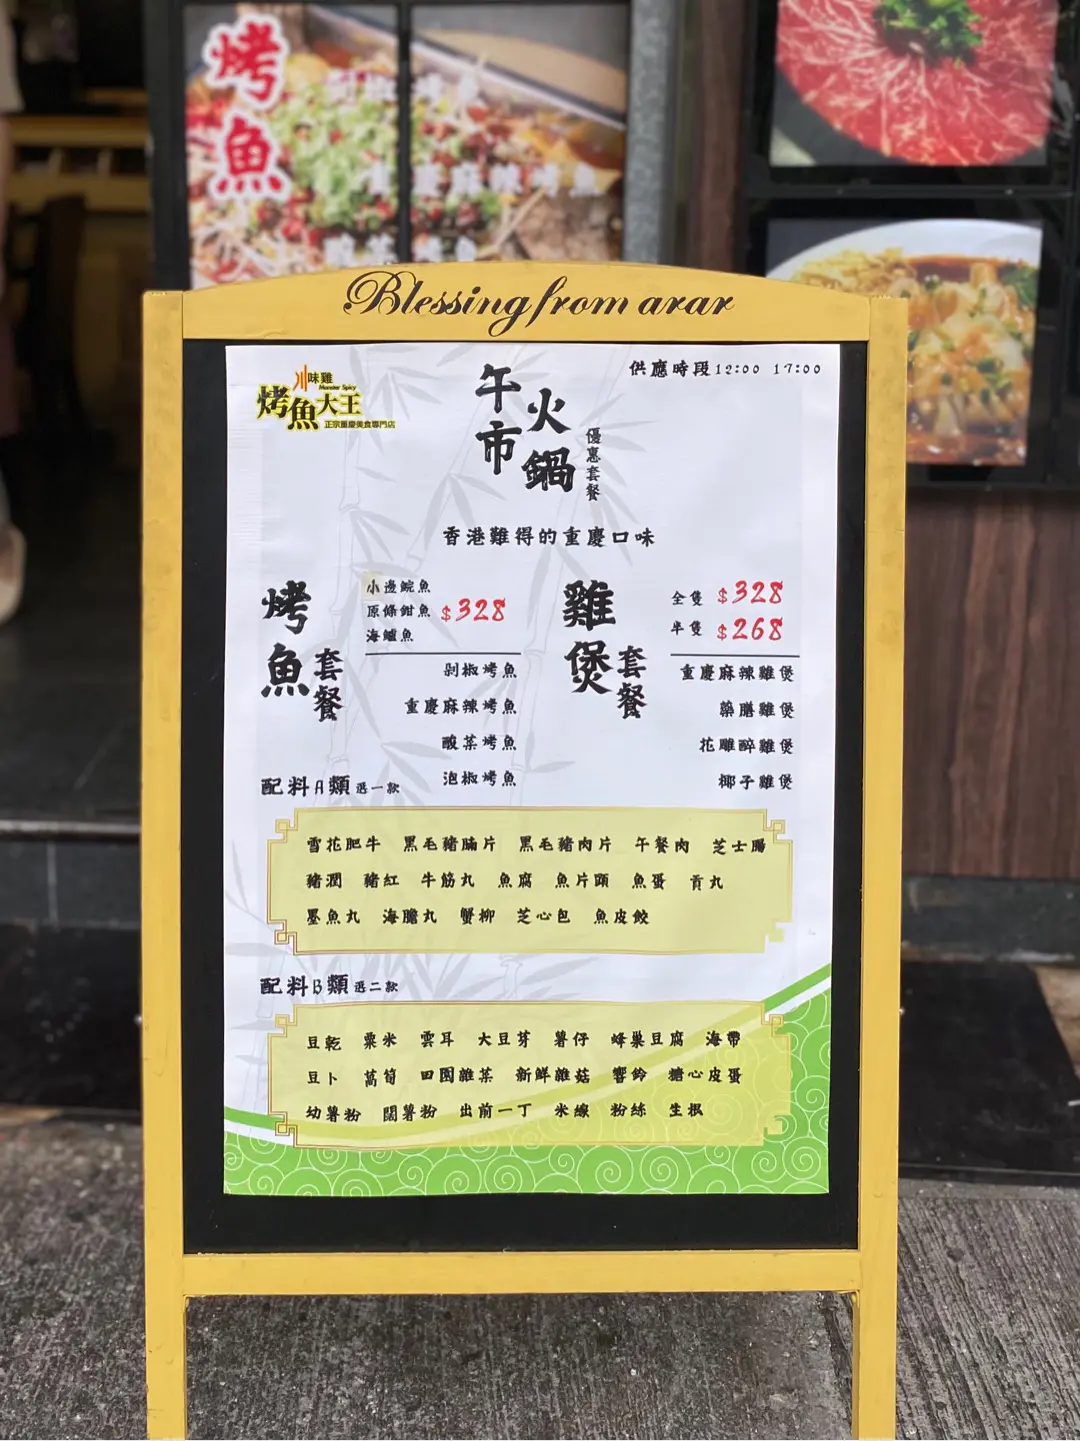 烤魚
Blessing from arar
川味雞
Monster Spicy
烤魚大王
正宗重慶美食專門店
供應時段12:00 17:00
午市
火鍋
優惠套餐
香港難得的重慶口味
烤魚
套餐
小邊鯇魚
原條鉗魚
海鱸魚
$328
剁椒烤魚
重慶麻辣烤魚
酸菜烤魚
泡椒烤魚
雞煲
套餐
全隻 $328
半隻 $268
重慶麻辣雞煲
藥膳雞煲
花雕醉雞煲
椰子雞煲
配料A類 選一款
雪花肥牛 黑毛豬腩片 黑毛豬肉片 午餐肉 芝士腸
豬潤 豬紅 牛筋丸 魚腐 魚片頭 魚蛋 貢丸
墨魚丸 海膽丸 蟹柳 芝心包 魚皮餃
配料B類 選二款
豆乾 粟米 雲耳 大豆芽 薯仔 蜂巢豆腐 海帶
豆卜 萵筍 田園雜菜 新鮮雜菇 響鈴 糖心皮蛋
幼薯粉 闊薯粉 出前一丁 米線 粉絲 生根